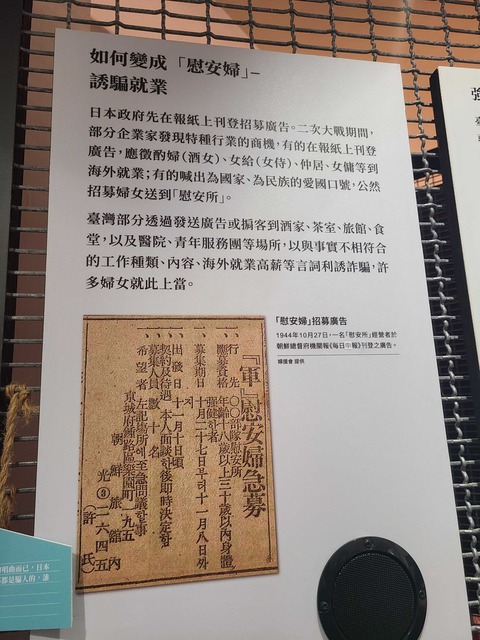 如何變成「慰安婦」–
誘騙就業
日本政府先在報紙上刊登招募廣告。二次大戰期間,
部分企業家發現特種行業的商機,有的在報紙上刊登
廣告,應徵酌婦(酒女)、女給(女侍)、仲居、女傭等到
海外就業;有的喊出為國家、為民族的愛國口號,公然
招募婦女送到「慰安所」。
臺灣部分透過發送廣告或掮客到酒家、茶室、旅館、食
堂,以及醫院、青年服務團等場所,以與事實不相符合
的工作種類、內容、海外就業高薪等言詞利誘詐騙,許
多婦女就此上當。
「慰安婦」招募廣告
1944年10月27日,一名「慰安所」經營者於
朝鮮總督府機關報《每日申報》刊登之廣告。
婦援會 提供
『軍』慰安婦急募
一、行先 〇〇部隊慰安所
一、應募資格 年齡十八歲以上三十歲以內身體
强健한者
一、募集期日 十月二十七日부터十一月八日까
지
一、出發日 十一月十日頃
一、契約及待遇 本人面談한後即時決定함
一、募集人員 數十名
一、希望者 左記場所에至急問議할事
京城府鍾路區樂園町一九五
朝鮮旅館內
光③二六四五
(許氏)
唱曲而已,日本
都是騙人的,誰
強